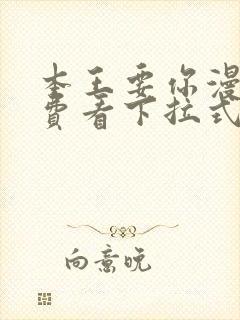 本王要你漫
费看下拉式
向意晚